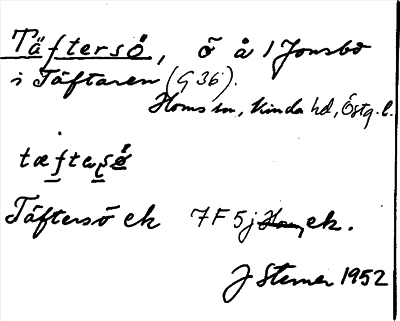 Täftersö, ö å 1 Jonsbo
i Täftaren (G 36).
Horns sn, Kinda hd, Östg. l.
tæftəṣø
Täftersö ek 7F 5j ek.
J Sterner 1952